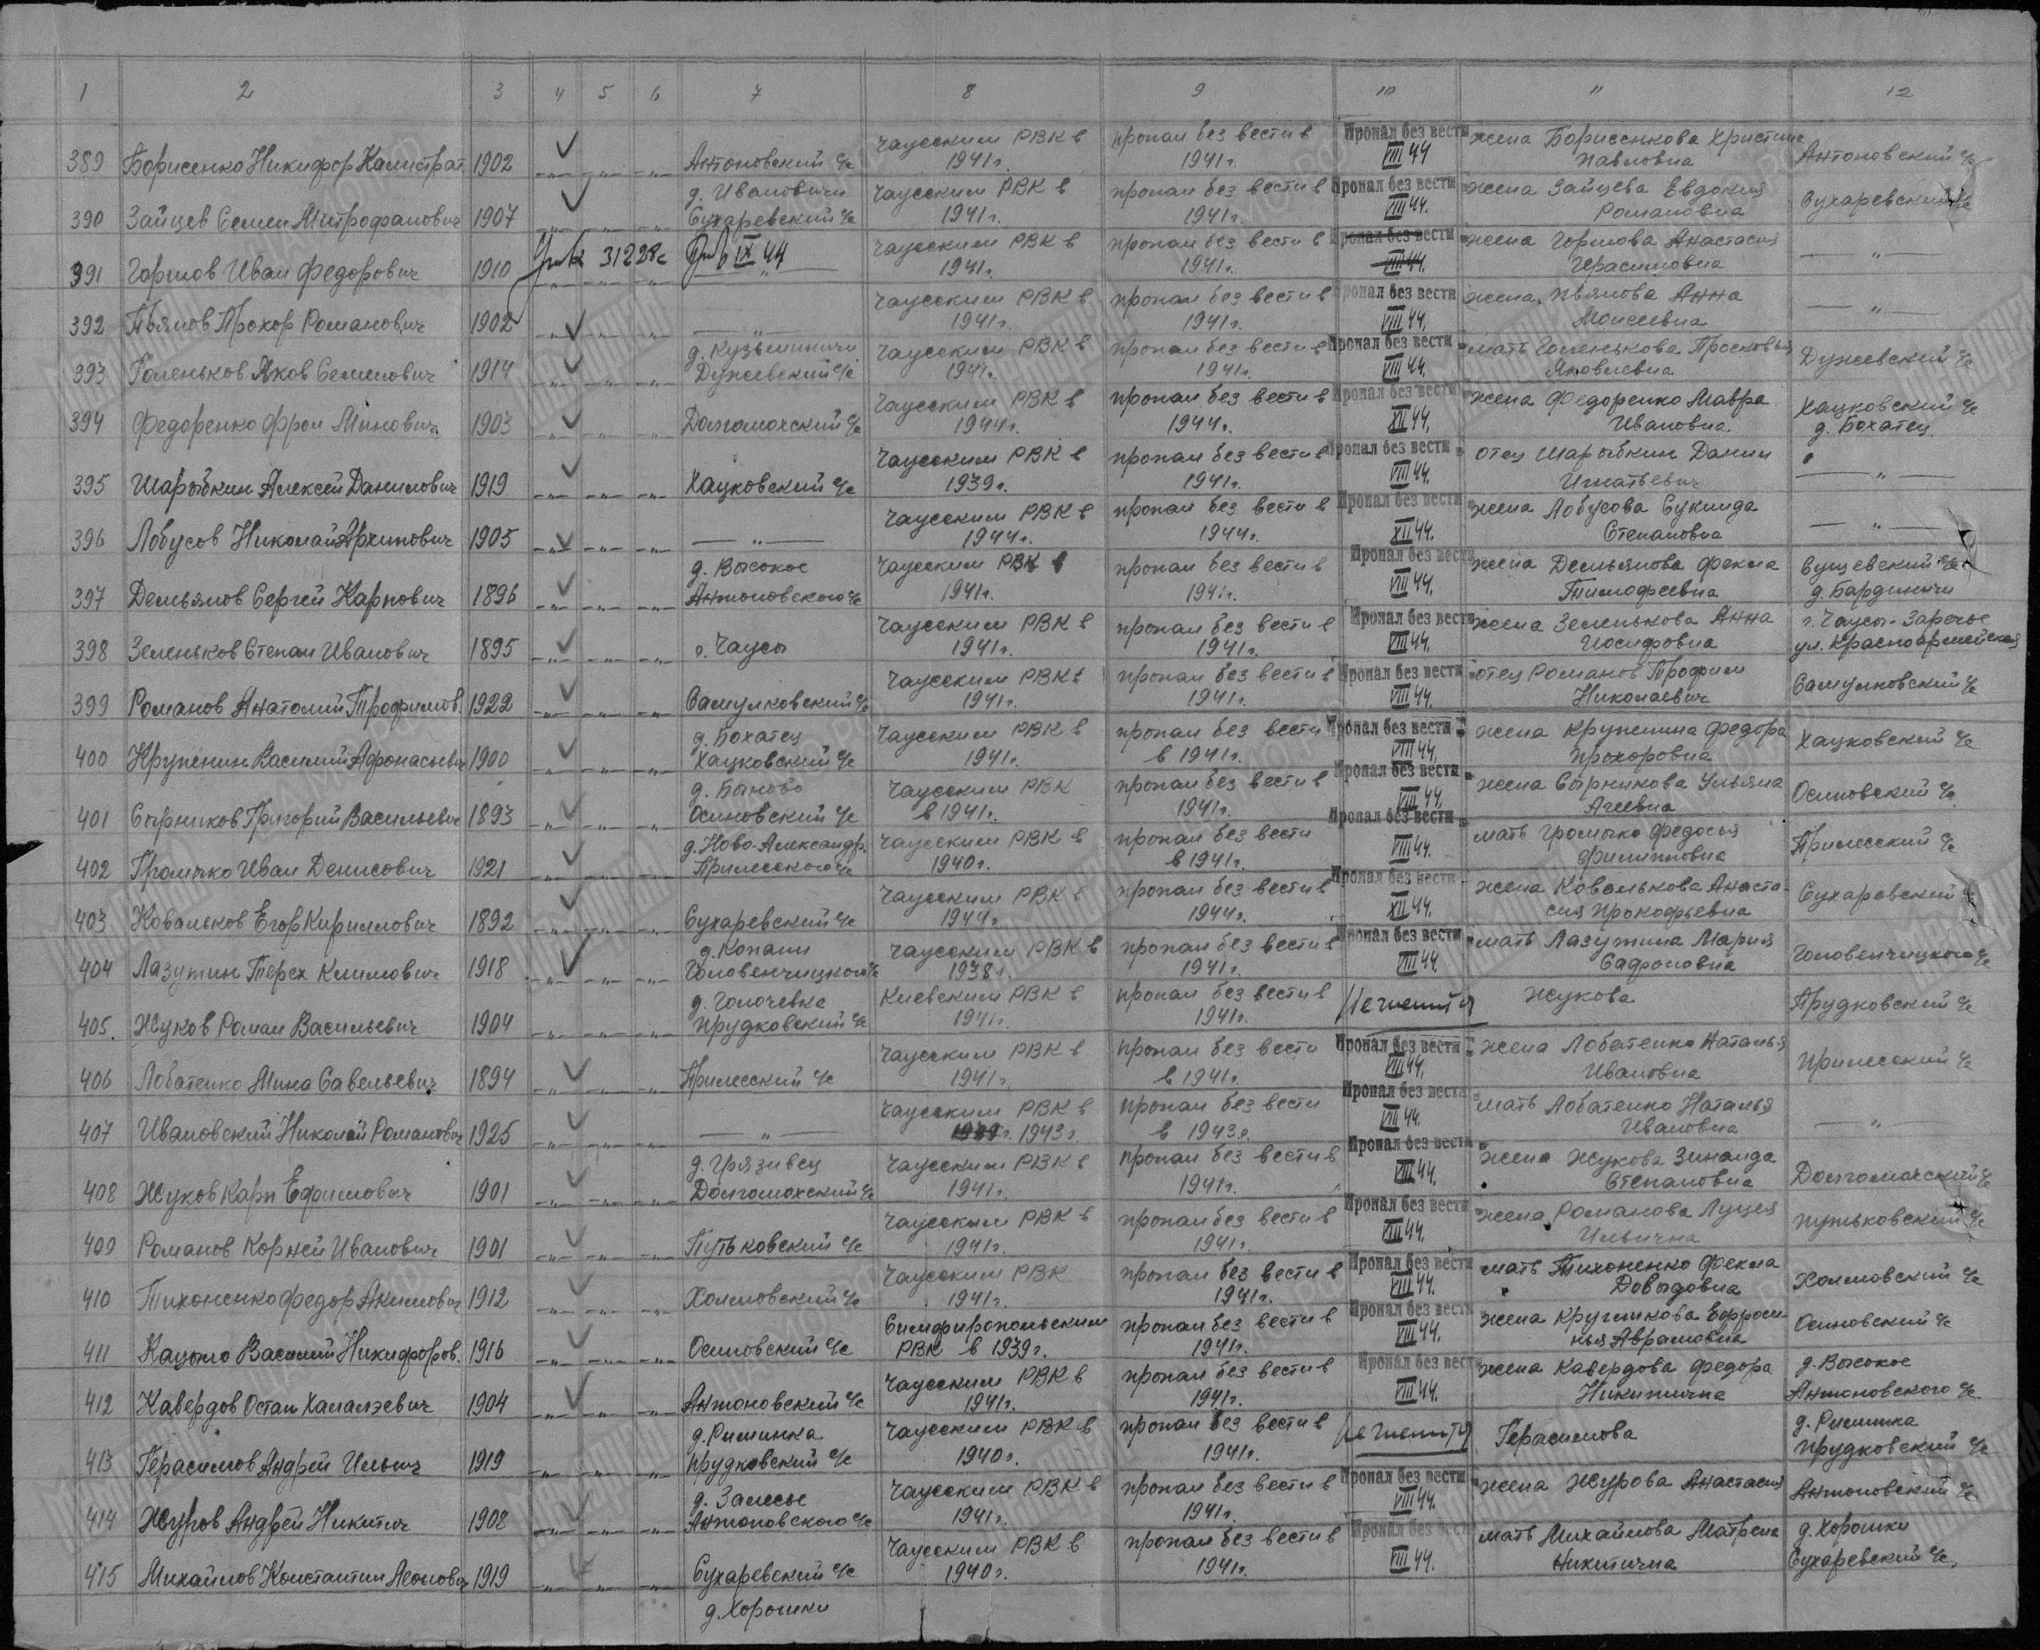 1 2 3 4 5 6 7 8 9 10 11 12
389 Борисенко Никифор Калистрат. 1902 -"- -"- -"- Антоновский с/с Чаусским РВК в 1941г. пропал без вести в 1941г. Пропал без вести VIII 44 жена Борисенкова Христина Павловна Антоновский с/с
390 Зайцев Семен Митрофанович 1907 -"- -"- -"- д. Ивановичи Сухаревский с/с Чаусским РВК в 1941г. пропал без вести в 1941г. Пропал без вести VIII 44. жена Зайцева Евдокия Романовна Сухаревский с/с
391 Горилов Иван Федорович 1910 31228с IX 44 -"- Чаусским РВК в 1941г. пропал без вести в 1941г. Пропал без вести VIII 44. жена Горилова Анастасия Герасимовна -"-
392 Пьянов Прохор Романович 1902 -"- -"- -"- -"- Чаусским РВК в 1941г. пропал без вести в 1941г. Пропал без вести VIII 44. жена Пьянова Анна Моисеевна -"-
393 Голеньков Яков Семенович 1914 -"- -"- -"- д. Кузьминичи Дужевский с/с Чаусским РВК в 1941г. пропал без вести в 1941г. Пропал без вести VIII 44. мать Голенькова Просковья Яковлевна Дужевский с/с
394 Федоренко Фрол Минович 1903 -"- -"- -"- Долгомохский с/с Чаусским РВК в 1944г. пропал без вести в 1944г. Пропал без вести XII 44. жена Федоренко Мавра Ивановна Хацковский с/с д. Бохатец
395 Шарыбкин Алексей Данилович 1919 -"- -"- -"- Хацковский с/с Чаусским РВК в 1939г. пропал без вести в 1941г. Пропал без вести VIII 44. отец Шарыбкин Данил Игнатьевич -"-
396 Лобусов Николай Архипович 1905 -"- -"- -"- -"- Чаусским РВК в 1944г. пропал без вести в 1944г. Пропал без вести XII 44. жена Лобусова Суклида Степановна -"-
397 Демьянов Сергей Карпович 1896 -"- -"- -"- д. Высокое Антоновского с/с Чаусским РВК в 1941г. пропал без вести в 1941г. Пропал без вести VIII 44. жена Демьянова Фекла Тимофеевна Сущевский с/с д. Бардиничи
398 Зеленьков Степан Иванович 1895 -"- -"- -"- г. Чаусы Чаусским РВК в 1941г. пропал без вести в 1941г. Пропал без вести VIII 44. жена Зеленькова Анна Иосифовна г. Чаусы-Заречье ул. Красноармейская
399 Романов Анатолий Трофимов. 1922 -"- -"- -"- Самулковский с/с Чаусским РВК в 1941г. пропал без вести в 1941г. Пропал без вести VIII 44. отец Романов Трофим Николаевич Самулковский с/с
400 Крупенин Василий Афонасьевич 1900 -"- -"- -"- д. Бохатец Хацковский с/с Чаусским РВК в 1941г. пропал без вести в 1941г. Пропал без вести VIII 44. жена Крупенина Федора Прохоровна Хацковский с/с
401 Сырников Григорий Васильевич 1893 -"- -"- -"- д. Быново Осиновский с/с Чаусским РВК в 1941г. пропал без вести в 1941г. Пропал без вести VIII 44. жена Сырникова Ульяна Агеевна Осиновский с/с
402 Громыко Иван Денисович 1921 -"- -"- -"- д. Ново-Александр. Прилесского с/с Чаусским РВК в 1940г. пропал без вести в 1941г. Пропал без вести VIII 44. мать Громыко Федосья Филипповна Прилесский с/с
403 Ковальков Егор Кириллович 1892 -"- -"- -"- Сухаревский с/с Чаусским РВК в 1944г. пропал без вести в 1944г. Пропал без вести XII 44. жена Ковалькова Анастасия Прокофьевна Сухаревский
404 Лазутин Терех Климович 1918 -"- -"- -"- д. Копани Головенчицкого с/с Чаусским РВК в 1938г. пропал без вести в 1941г. Пропал без вести VIII 44. мать Лазутина Мария Сафроновна Головенчицкого с/с
405. Жуков Роман Васильевич 1904 -"- -"- -"- д. Голочевка Прудковский с/с Киевским РВК в 1941г. пропал без вести в 1941г. Жукова Прудковский с/с
406 Лобатенко Мина Савельевич 1894 -"- -"- -"- Прилесский с/с Чаусским РВК в 1941г. пропал без вести в 1941г. Пропал без вести VIII 44. жена Лобатенко Наталья Ивановна Прилесский с/с
407 Ивановский Николай Романович 1925 -"- -"- -"- -"- Чаусским РВК в 1943г. пропал без вести в 1943г. Пропал без вести VIII 44. мать Лобатенко Наталья Ивановна -"-
408 Жуков Карп Ефимович 1901 -"- -"- -"- д. Грязивец Долгомохский с/с Чаусским РВК в 1941г. пропал без вести в 1941г. Пропал без вести VIII 44. жена Жукова Зинаида Степановна Долгомохский с/с
409 Романов Корней Иванович 1901 -"- -"- -"- Путьковский с/с Чаусским РВК в 1941г. пропал без вести в 1941г. Пропал без вести VIII 44. жена Романова Луцея Ильична Путьковский с/с
410 Тихоненко Федор Акимович 1912 -"- -"- -"- Холмовский с/с Чаусским РВК 1941г. пропал без вести в 1941г. Пропал без вести VIII 44. мать Тихоненко Фекла Довыдовна Холмовский с/с
411 Кацыло Василий Никифоров. 1916 -"- -"- -"- Осиновский с/с Симфиропольским РВК в 1939г. пропал без вести в 1941г. Пропал без вести VIII 44. жена Кругликова Ефросинья Аврамовна Осиновский с/с
412 Кавердов Остап Хамалэевич 1904 -"- -"- -"- Антоновский с/с Чаусским РВК в 1941г. пропал без вести в 1941г. Пропал без вести VIII 44. жена Кавердова Федора Никитична д. Высокое Антоновского с/с
413 Герасимов Андрей Ильич 1919 -"- -"- -"- д. Риминка Прудковский с/с Чаусским РВК в 1940г. пропал без вести в 1941г. Герасимова д. Риминка Прудковский с/с
414 Журов Андрей Никитич 1908 -"- -"- -"- д. Залесье Антоновского с/с Чаусским РВК в 1941г. пропал без вести в 1941г. Пропал без вести VIII 44. жена Журова Анастасия Антоновский с/с
415 Михайлов Константин Леонович 1919 -"- -"- -"- Сухаревский с/с д. Хорошки Чаусским РВК в 1940г. пропал без вести в 1941г. Пропал без вести VIII 44. мать Михайлова Матрена Никитична д. Хорошки Сухаревский с/с